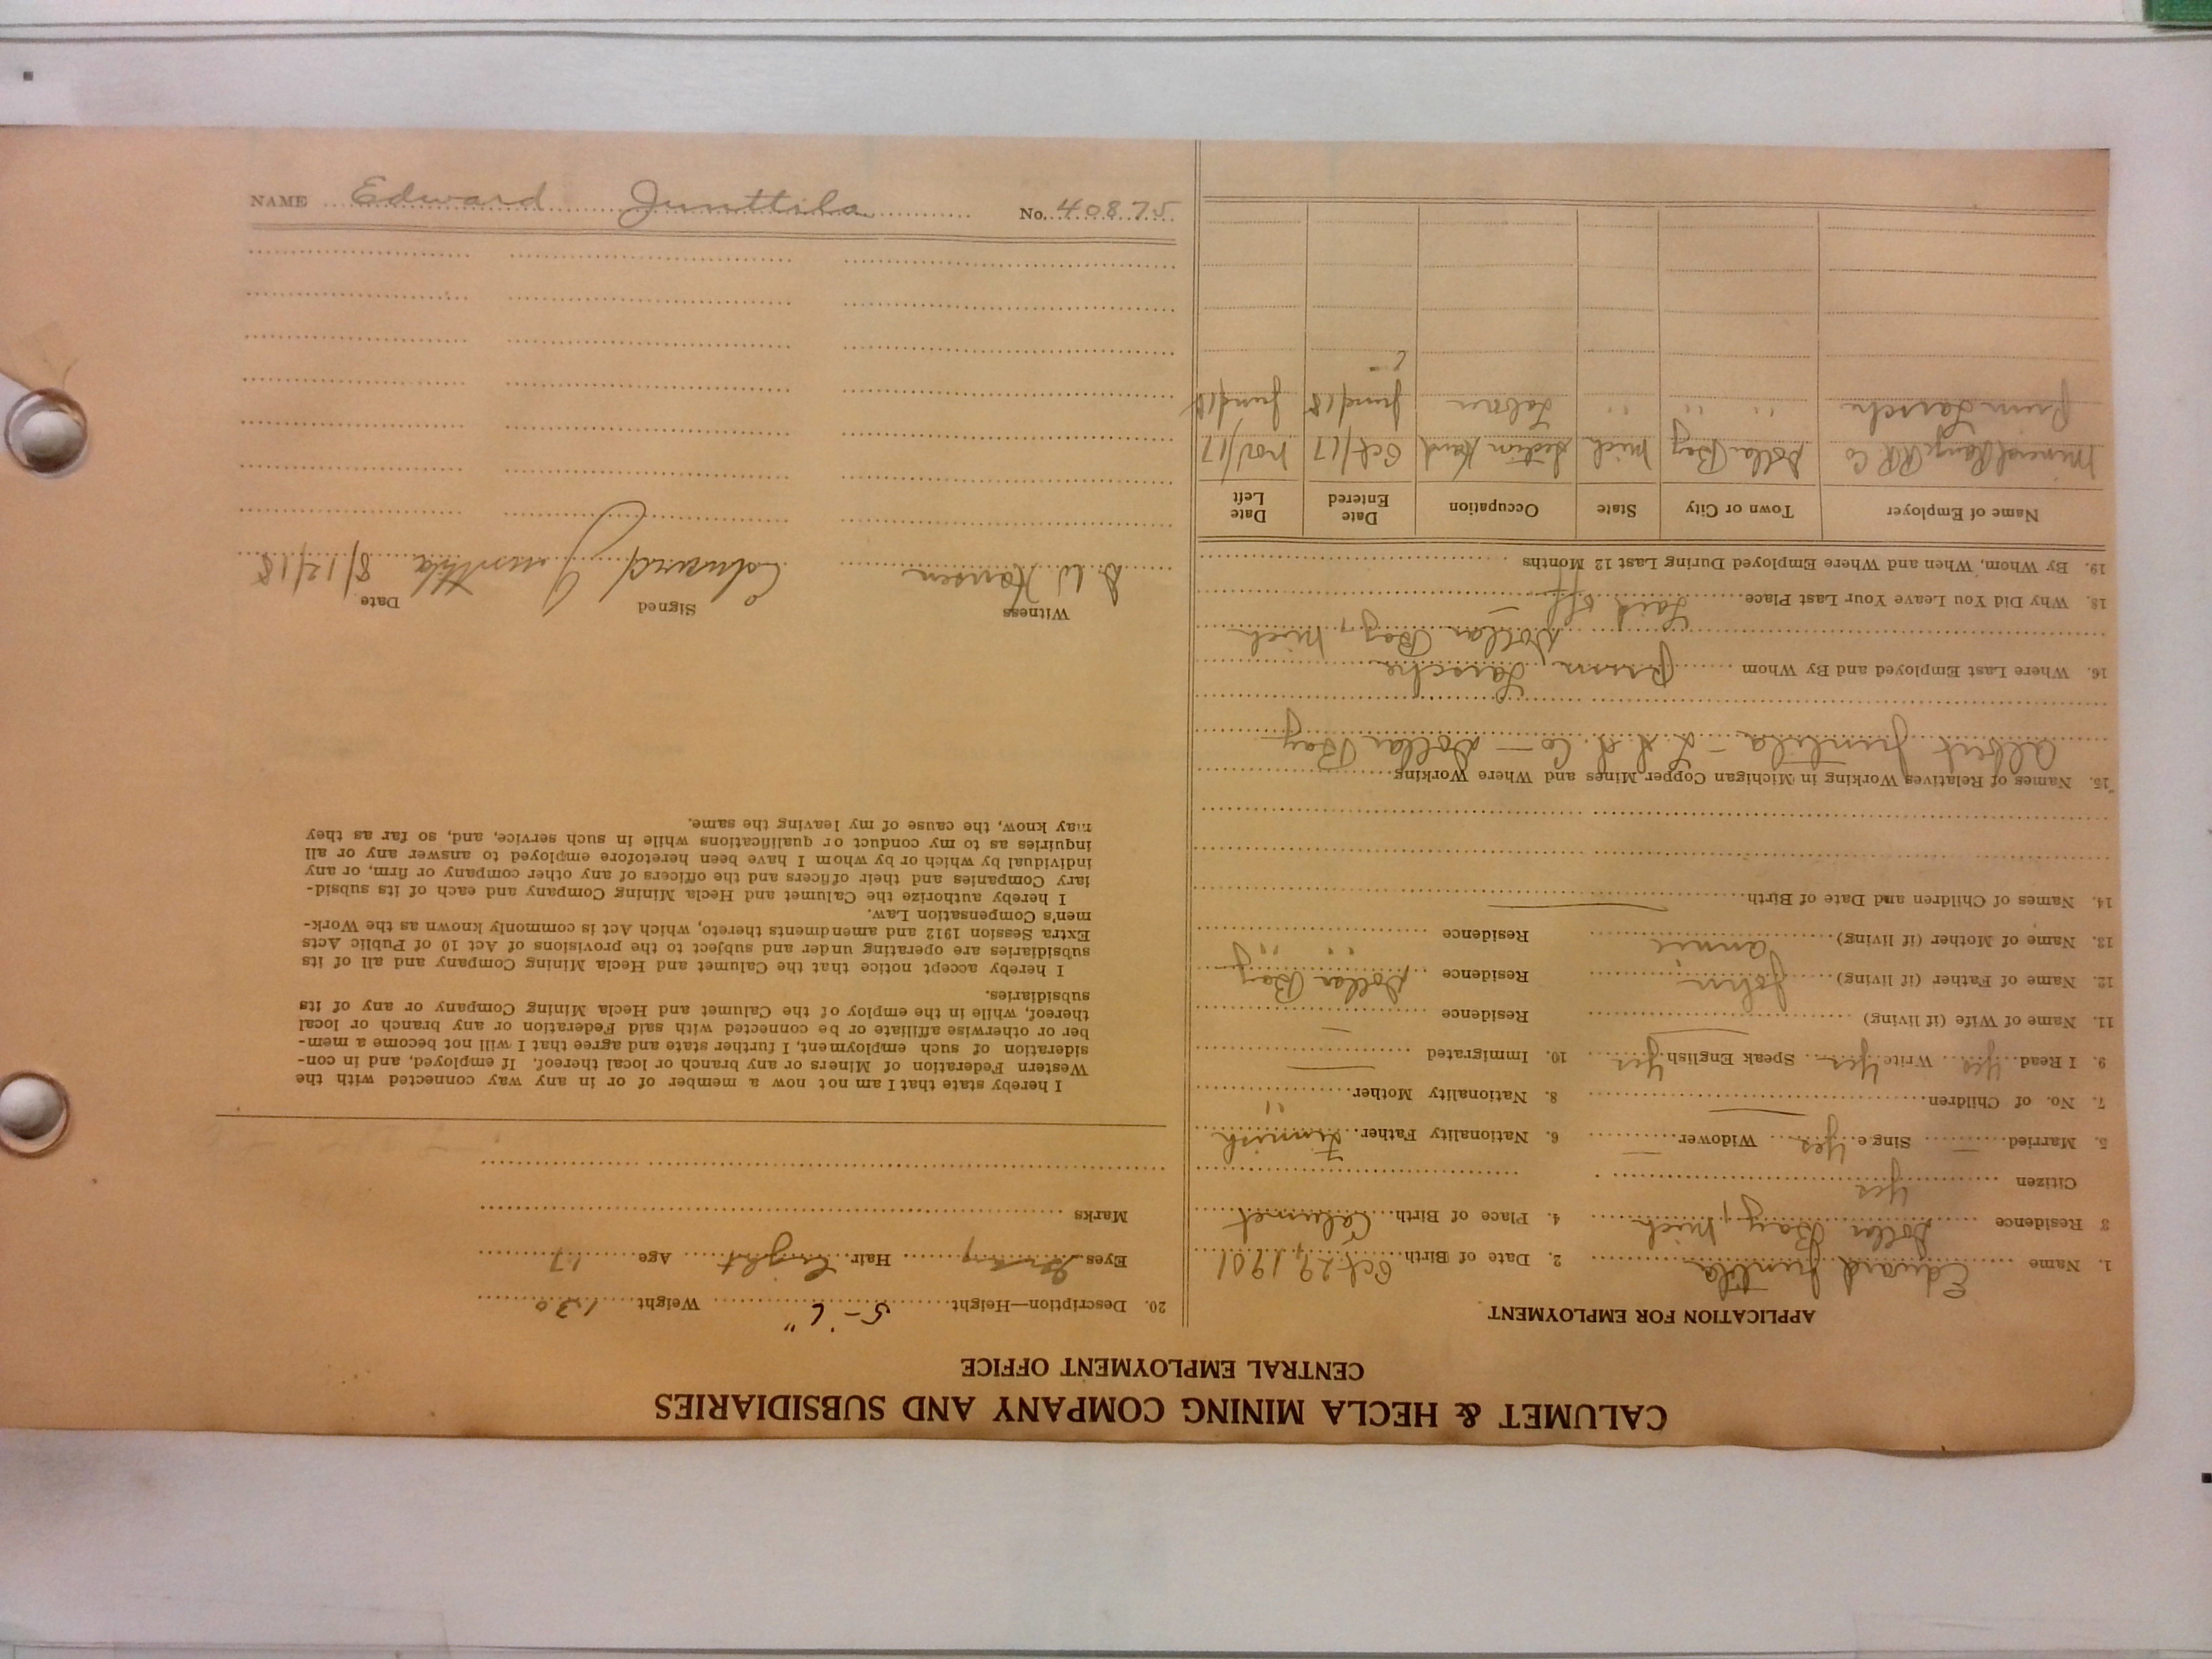 CALUMET & HECLA MINING COMPANY AND SUBSIDIARIES
CENTRAL EMPLOYMENT OFFICE
APPLICATION FOR EMPLOYMENT
1. Name Edward Juntila 2. Date of Birth Oct. 29, 1901
3 Residence Dollar Bay, Mich 4. Place of Birth Calumet
Citizen Yes
5. Married — Single Yes Widower — 6. Nationality Father Finnish
7. No. of Children 8. Nationality Mother " "
9. I Read Yes Write Yes Speak English Yes 10. Immigrated
11. Name of Wife (if living) Residence
12. Name of Father (if living) John Residence Dollar Bay
13. Name of Mother (if living) Annie Residence " "
14. Names of Children and Date of Birth
15. Names of Relatives Working in Michigan Copper Mines and Where Working
Albert Juntila – Co – Dollar Bay
16. Where Last Employed and By Whom
Dollar Bay, Mich
18. Why Did You Leave Your Last Place Laid off
19. By Whom, When and Where Employed During Last 12 Months
Name of Employer Town or City State Occupation Date Entered Date Left
Mineral Range RR Co Dollar Bay Mich Section Hand Oct/17 Nov/17
" " " Laborer June/18 June/18
20. Description—Height 5-6" Weight 130
Eyes Gray Hair Light Age 17
Marks
I hereby state that I am not now a member of or in any way connected with the
Western Federation of Miners or any branch or local thereof. If employed, and in con-
sideration of such employment, I further state and agree that I will not become a mem-
ber or otherwise affiliate or be connected with said Federation or any branch or local
thereof, while in the employ of the Calumet and Hecla Mining Company or any of its
subsidiaries.
I hereby accept notice that the Calumet and Hecla Mining Company and all of its
subsidiaries are operating under and subject to the provisions of Act 10 of Public Acts
Extra Session 1912 and amendments thereto, which Act is commonly known as the Work-
men's Compensation Law.
I hereby authorize the Calumet and Hecla Mining Company and each of its subsid-
iary Companies and their officers and the officers of any other company or firm, or any
individual by which or by whom I have been heretofore employed to answer any or all
inquiries as to my conduct or qualifications while in such service, and, so far as they
may know, the cause of my leaving the same.
Witness Signed Date
W. Hansen Edward Junttila 8/12/18
NAME Edward Junttila No. 40875